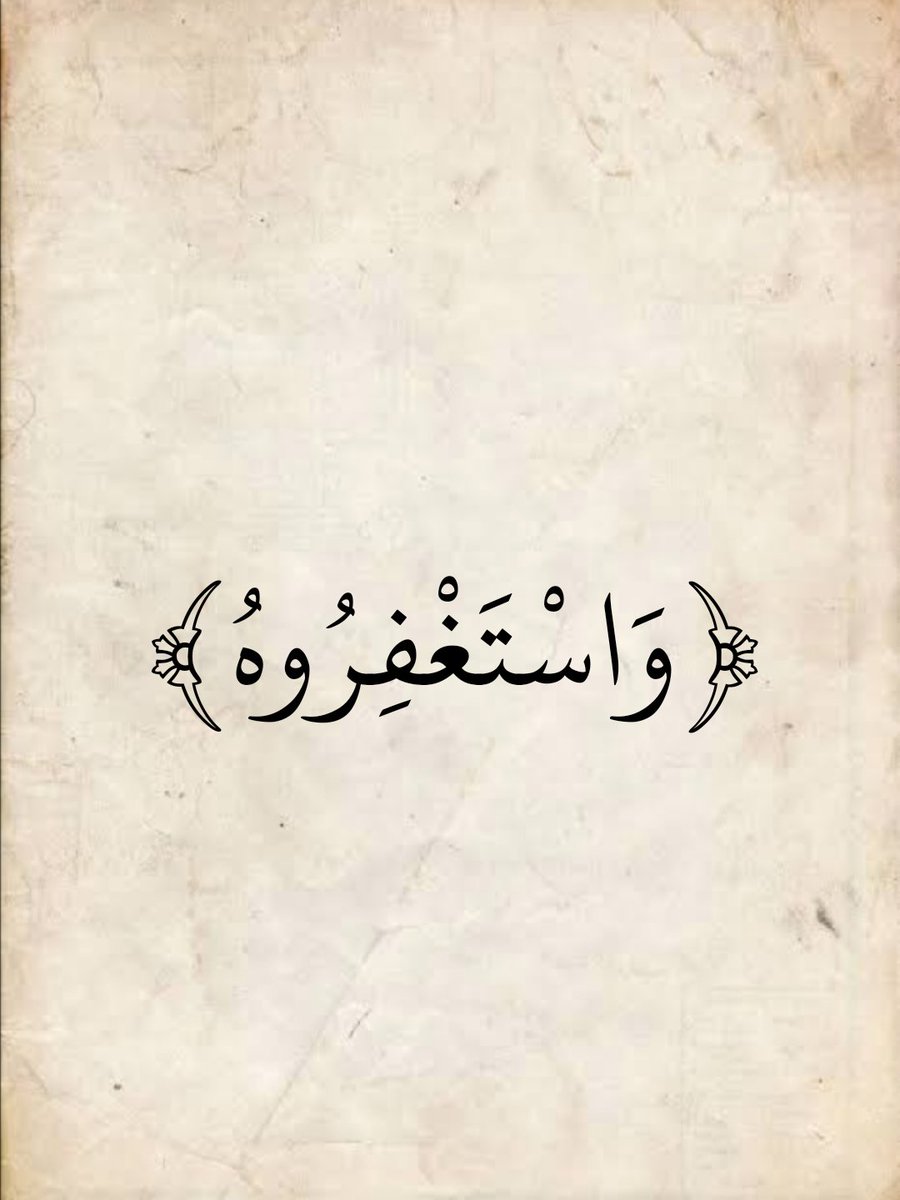 ﴿وَاسْتَغْفِرُوهُ﴾